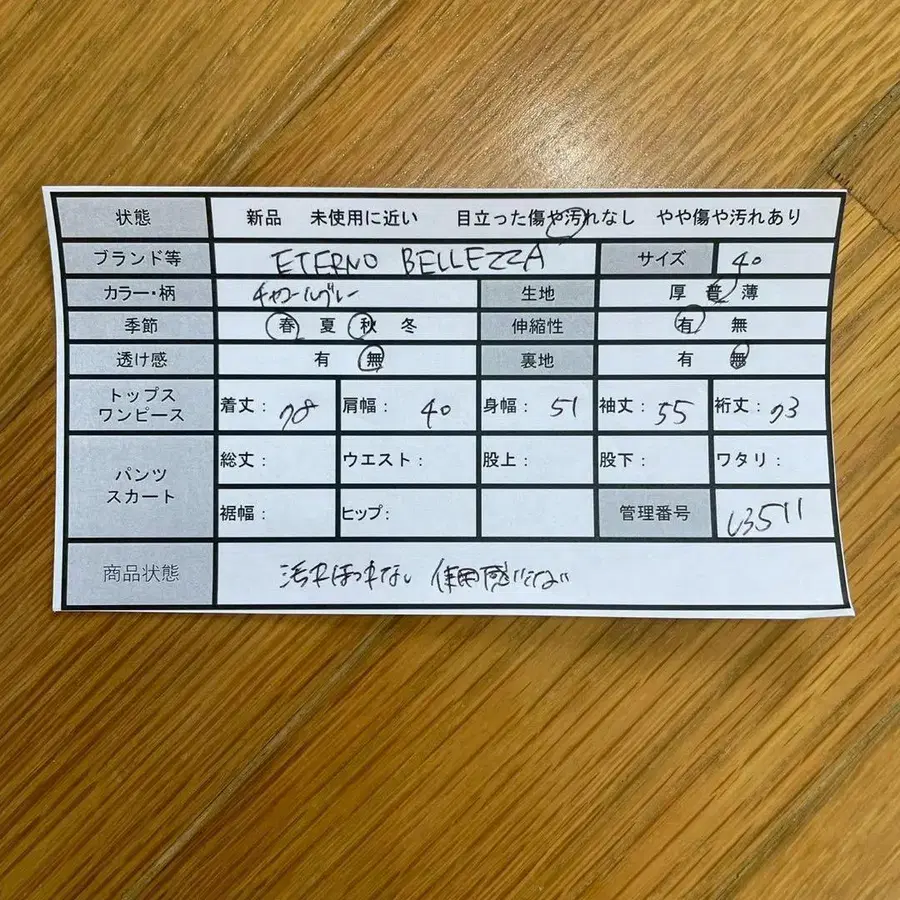 状態 新品 未使用に近い 目立った傷や汚れなし やや傷や汚れあり
ブランド等 ETERNO BELLEZZA サイズ 40
カラー・柄 チャコールグレー 生地 厚 普 薄
季節 春 夏 秋 冬 伸縮性 有 無
透け感 有 無 裏地 有 無
トップス
ワンピース
着丈: 78 肩幅: 40 身幅: 51 袖丈: 55 裄丈: 73
パンツ
スカート
総丈: ウエスト: 股上: 股下: ワタリ:
裾幅: ヒップ: 管理番号 3511
商品状態 汚れほつれなし 使用感